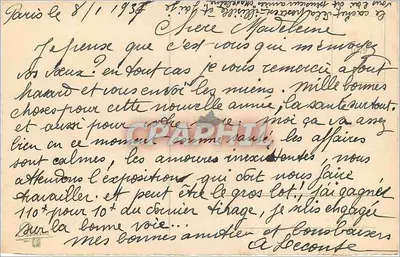 Paris le 8/1 1937
Chere Madeleine
Je pense que c'est vous qui m'envoyez
vos vœux? en tout cas je vous remercie a tout
hasard et vous envoi les miens. mille bonnes
choses pour cette nouvelle année, la santé surtout.
et aussi pour votre moi ça va assez
bien en ce moment les affaires
sont calmes, les amoures inexistentes, nous
attendons l'exposition qui doit nous faire
travailler. et peut être le gros lot! j'ai gagnée
110f pour 10f du dernier tirage, je suis engagée
sur la bonne voie...
mes bonnes amities et bons baisers
a Leconte
CPAPHIL